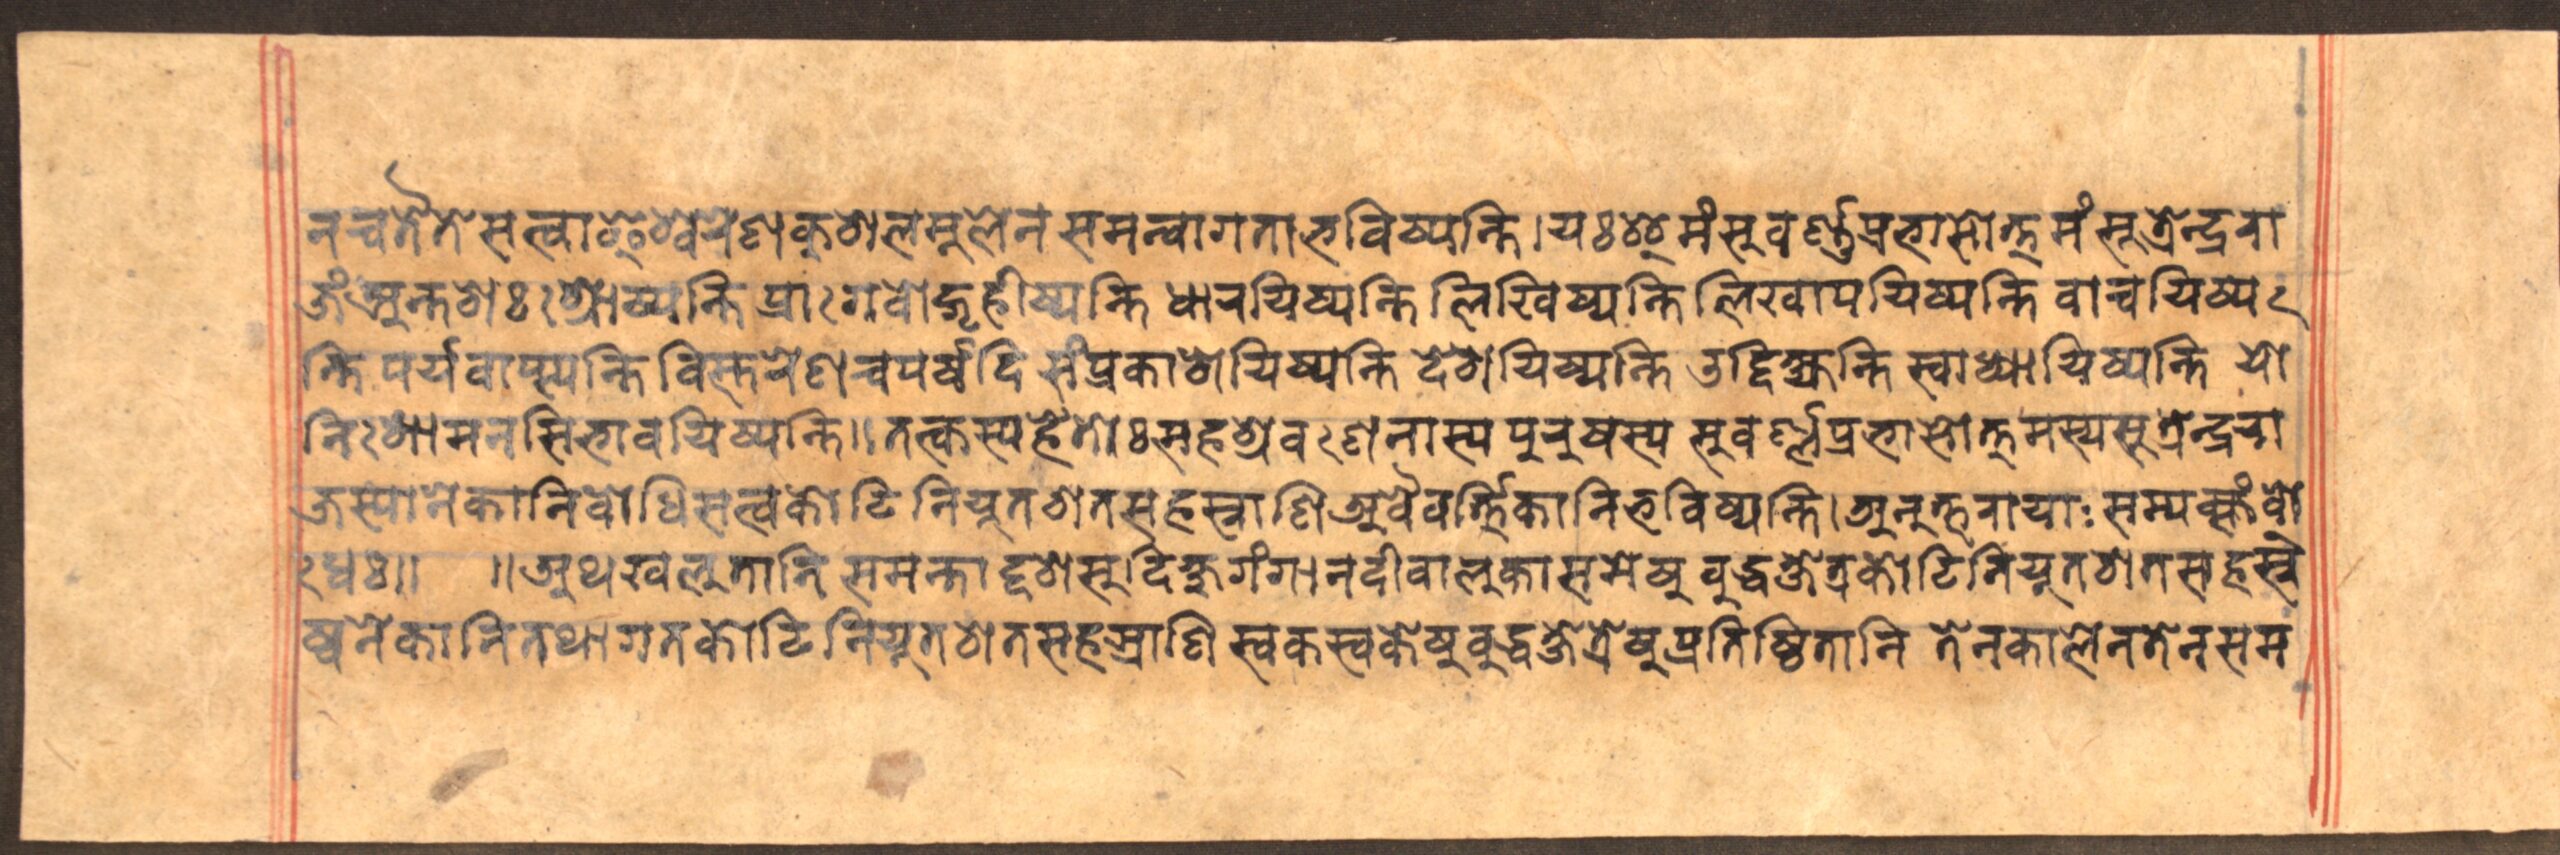 न च तै ते सत्वा ॐ श्वरेण कुशलमूलेन समन्वागता भविष्यन्ति । यः इमं सुवर्ण्णप्रभासोत्तमं सूत्रेन्द्ररा
जं अन्तशः श्रोष्यन्ति प्रागवोद्गृहीष्यन्ति धारयिष्यन्ति लिखिष्यन्ति लिखापयिष्यन्ति वाचयिष्य
न्ति पर्यवाप्स्यन्ति विस्तरेण च पर्षदि संप्रकाशयिष्यन्ति देशयिष्यन्ति उद्दिक्ष्यन्ति स्वाध्यायिष्यन्ति यो
निशामनसि भावयिष्यन्ति ॥ तत्कस्य हेतोः सहश्रवणेनास्य पुरुषस्य सुवर्ण्णप्रभासोत्तमस्य सूत्रेन्द्ररा
जस्यानेकानि बोधिसत्वकोटिनियुतशतसहस्राणि अवैवर्त्तिकानि भविष्यन्ति । अनुत्तरायाः सम्यक्संबो
धेः ॥ ॥ अथ खलु तानि समन्ताद्दशसु । दिक्षु गंगानदीवालुकासमेषु बुद्धक्षेत्रकोटिनियुतशतसहस्रे
ष्वनेकानि तथागतकोटिनियुतशतसहस्राणि स्वकस्वकेषु बुद्धक्षेत्रेषु प्रतिष्ठितानि तेन कालेन तेन सम